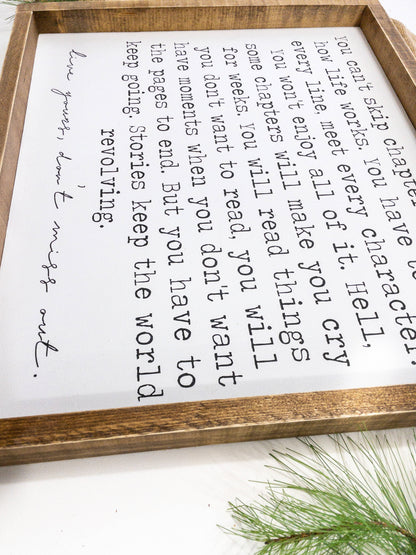 You can't skip chapter
how life works. You have t
every line, meet every character.
You won't enjoy all of it. Hell,
some chapters will make you cry
for weeks. You will read things
you don't want to read, you will
have moments when you don't want
the pages to end. But you have to
keep going. Stories keep the world
revolving.
live yours, don't miss out.